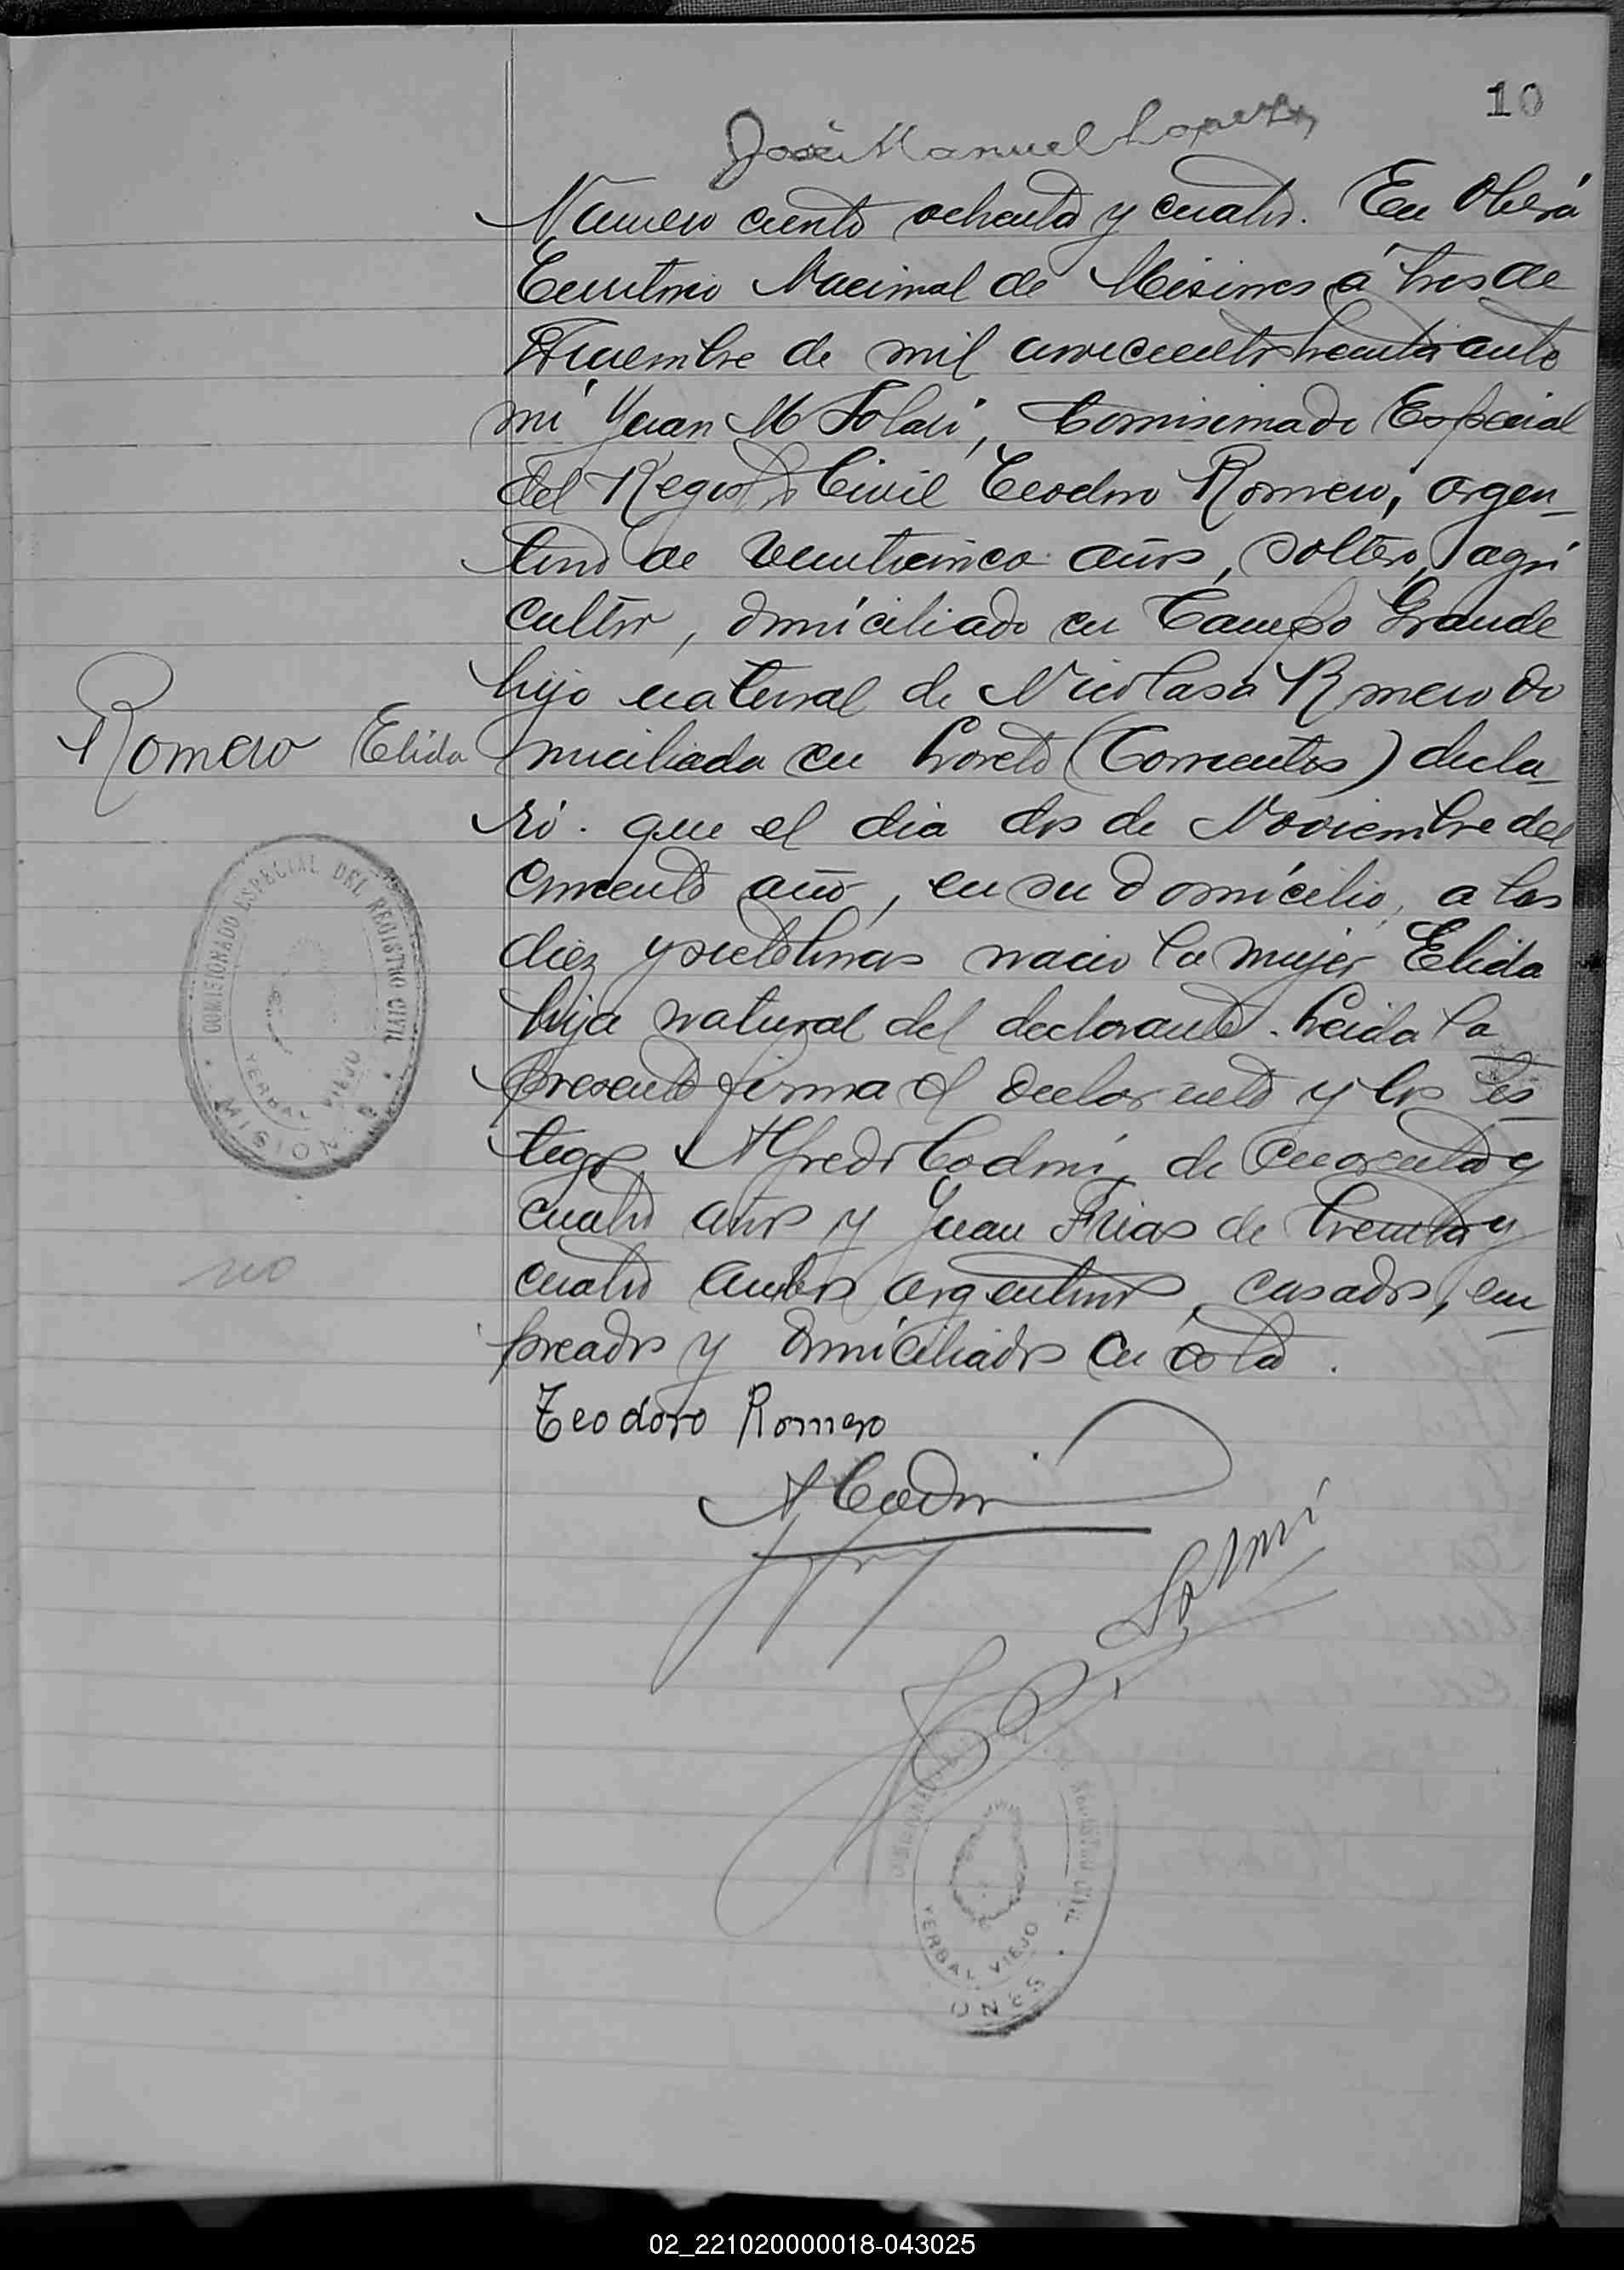 10
José Manuel Lopez
Numero ciento ochenta y cuatro. En Oberá
Territorio Nacional de Misiones á tres de
Diciembre de mil novecientos treinta ante
mi Juan M Solari, Comisionado Especial
del Registro Civil Teodoro Romero, argen-
tino de veinticinco años, soltero, agri
cultor, domiciliado en Campo Grande
hijo natural de Nicolasa Romero do
miciliada en Loreto (Corrientes) decla-
ró. que el dia dos de Noviembre del
corriente año, en su domicilio, a las
diez y siete horas nacio la mujer Elida
hija natural del declarante. Leida la
presente firma el declarante y los tes-
tigos Alfredo Codoni, de cuarenta y
cuatro años y Juan Frias de treinta y
cuatro ambos argentinos, casados, em-
pleados y domiciliados en esta.
Romero Elida
COMISIONADO ESPECIAL DEL REGISTRO CIVIL
YERBAL VIEJO
MISIONES
no
Teodoro Romero
A Codoni
Solari
REGISTRO CIVIL
YERBAL VIEJO
ONES
02_221020000018-043025